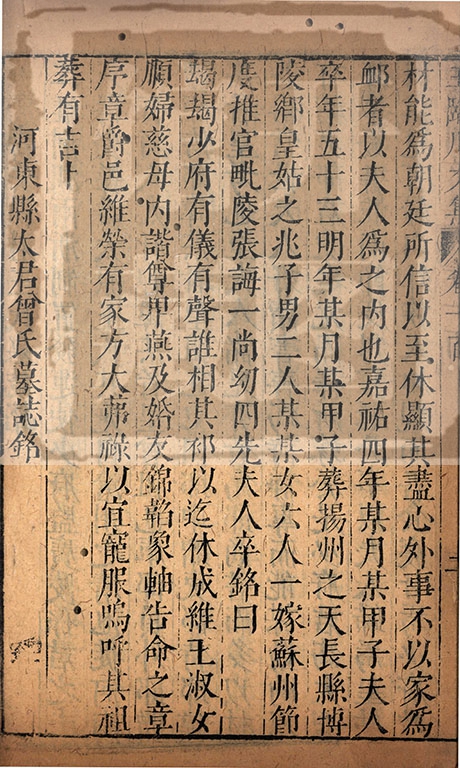 材能爲朝廷所信以至休顯其盡心外事不以家爲
䘏者以夫人爲之內也嘉祐四年某月某甲子夫人
卒年五十三明年某月某甲子葬揚州之天長縣博
陵鄉皇姑之兆子男二人某某女六人一嫁蘇州節
度推官毗陵張誨一尚幼四先夫人卒銘曰
堨堨少府有儀有聲誰相其祁以迄休成維王淑女
順婦慈母內諧尊卑燕及婚友錦韜象軸告命之章
序章爵邑維榮有家方大茀祿以宜寵服嗚呼其祖
葬有吉卜
河東縣太君曾氏墓誌銘